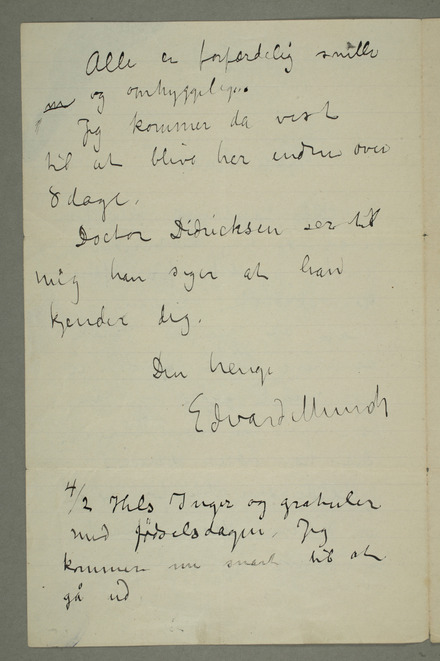 Alle er forfærdelig snille
og omhyggelige.
Jeg kommer da vist
til at blive her endnu over
8 dage.
Doctor Didricksen ser til
mig han siger at han
kjender dig.
Din hengi
Edvard Munch
4/2 Hils Inger og gratuler
med fødselsdagen. Jeg
kommer nu snart til at
gå ud